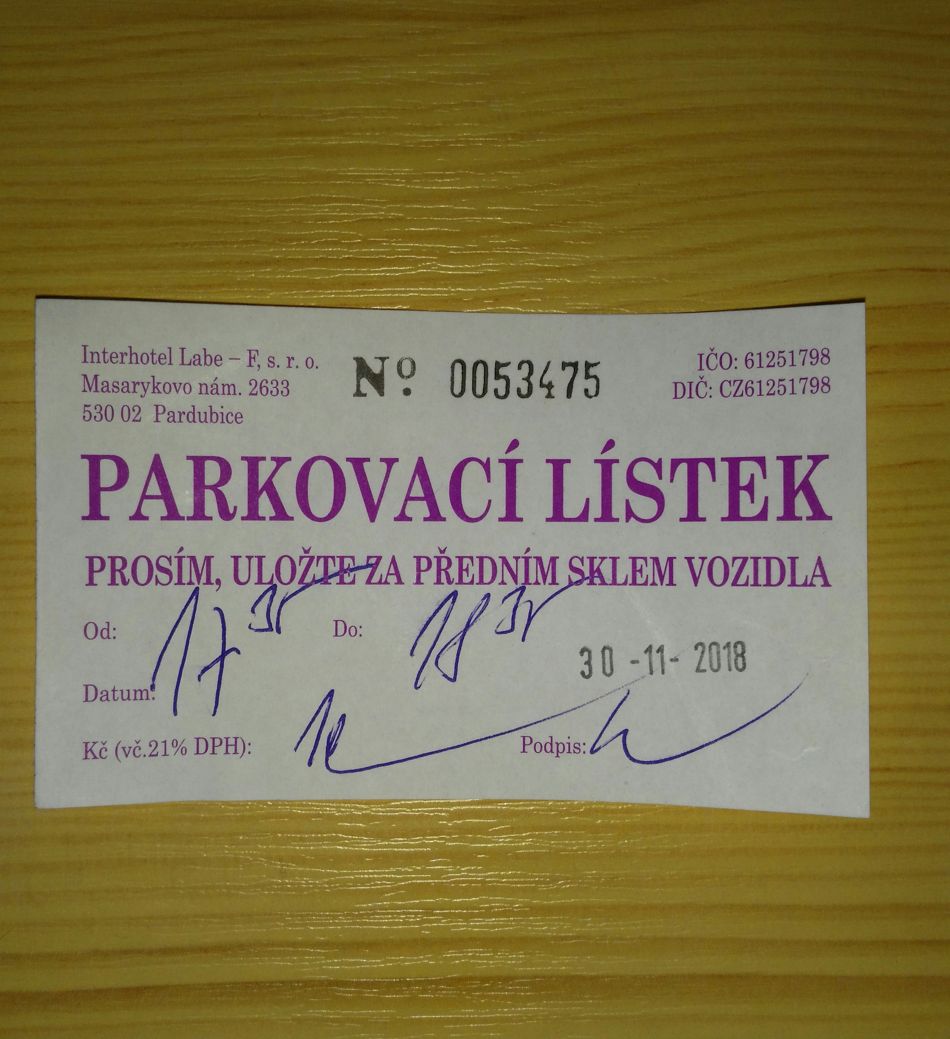 Interhotel Labe – F, s. r. o.
Masarykovo nám. 2633
530 02 Pardubice
Nº 0053475
IČO: 61251798
DIČ: CZ61251798
PARKOVACÍ LÍSTEK
PROSÍM, ULOŽTE ZA PŘEDNÍM SKLEM VOZIDLA
Od: 17 35 Do: 18 35
Datum: 30 -11- 2018
Kč (vč.21% DPH):
Podpis: